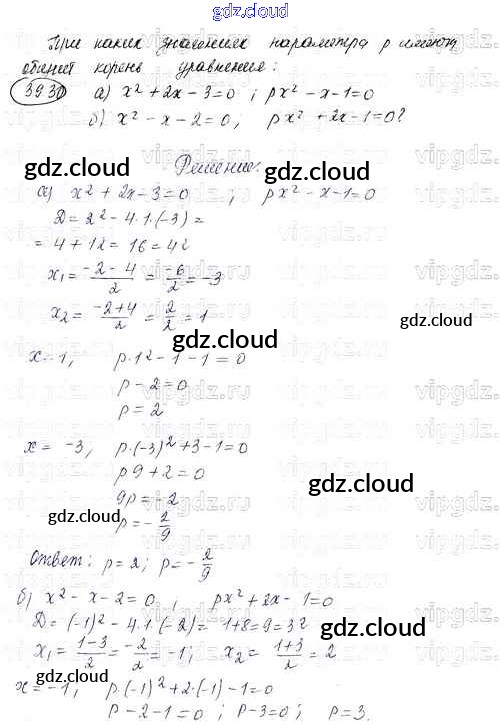 gdz.cloud
При каких значениях параметра p имеют
общий корень уравнения:
393 а) x² + 2x - 3 = 0 ; px² - x - 1 = 0
б) x² - x - 2 = 0, px² + 2x - 1 = 0?
Решение:
gdz.cloud gdz.cloud
а) x² + 2x - 3 = 0 ; px² - x - 1 = 0
D = 2² - 4·1·(-3) =
= 4 + 12 = 16 = 4²
x₁ = (-2 - 4)/2 = -6/2 = -3
x₂ = (-2 + 4)/2 = 2/2 = 1
gdz.cloud
gdz.cloud
x = 1, p·1² - 1 - 1 = 0
p - 2 = 0
p = 2
x = -3, p·(-3)² + 3 - 1 = 0
p9 + 2 = 0
gdz.cloud
9p = -2
gdz.cloud
p = -2/9
Ответ: p = 2; p = -2/9
б) x² - x - 2 = 0, ; px² + 2x - 1 = 0
D = (-1)² - 4·1·(-2) = 1 + 8 = 9 = 3²
gdz.cloud gdz.cloud
x₁ = (1 - 3)/2 = -2/2 = -1; x₂ = (1 + 3)/2 = 2
x = -1, p·(-1)² + 2·(-1) - 1 = 0
p - 2 - 1 = 0 ; p - 3 = 0; p = 3.